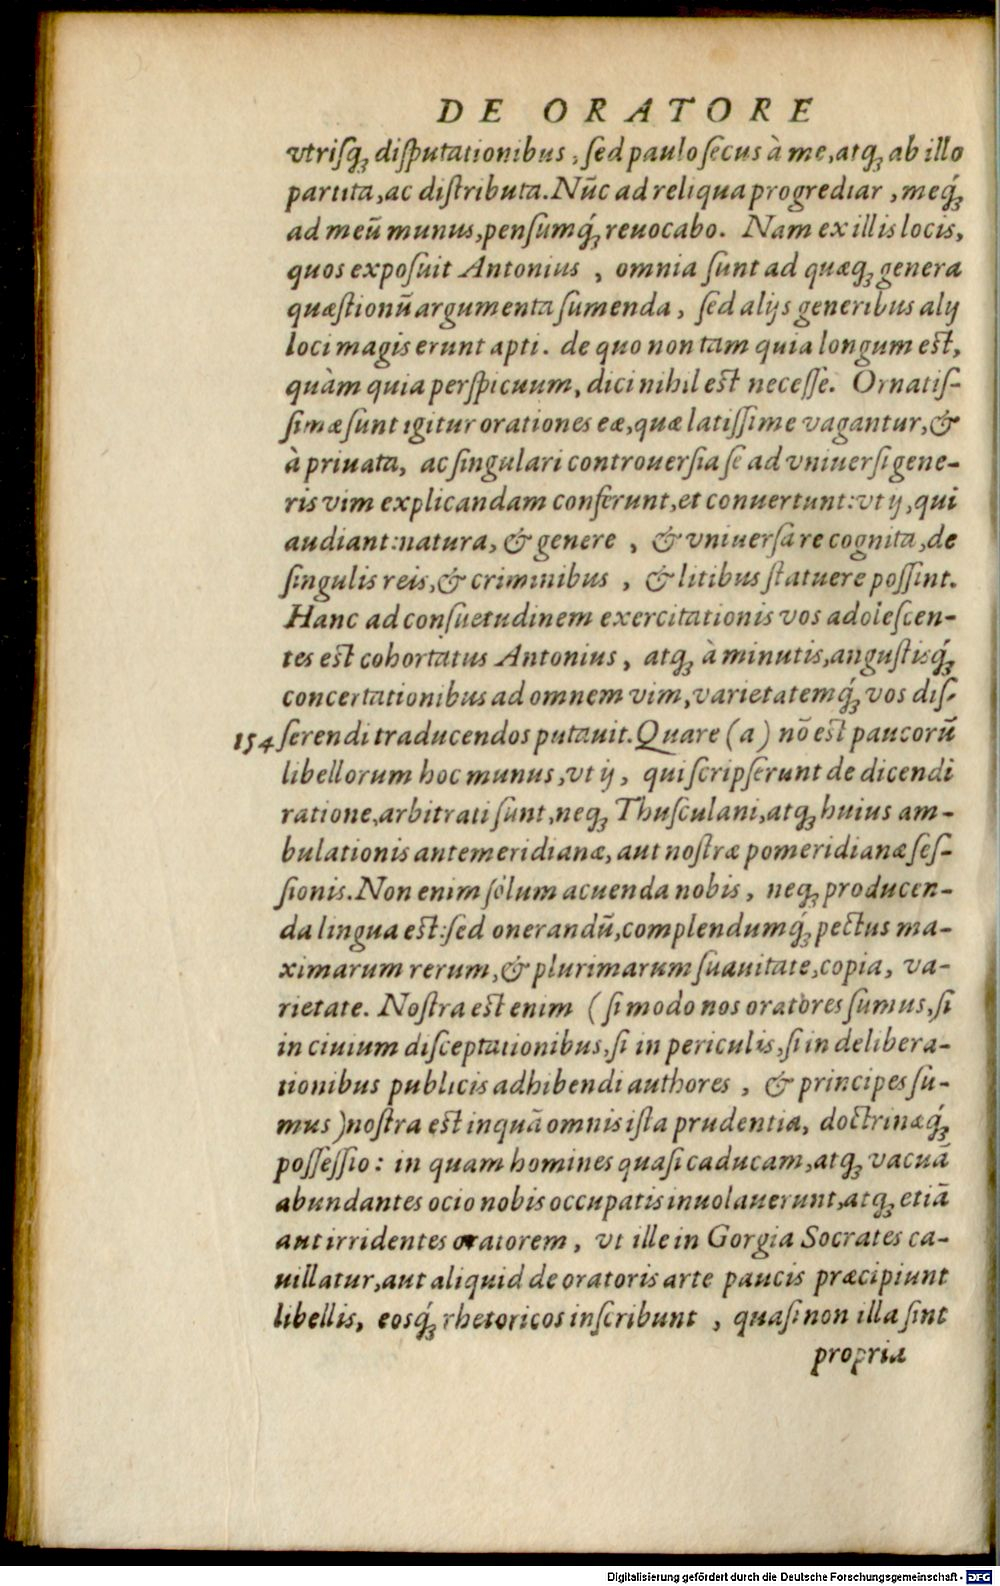 DE ORATORE
vtriſq́; diſputationibus, ſed paulo ſecus à me, atq; ab illo
partita, ac diſtributa. Nūc ad reliqua progrediar, meq́;
ad meū munus, penſumq́; reuocabo. Nam ex illis locis,
quos expoſuit Antonius, omnia ſunt ad quæq; genera
quæſtionū argumenta ſumenda, ſed alijs generibus alij
loci magis erunt apti. de quo non tam quia longum eſt,
quàm quia perſpicuum, dici nihil eſt neceſſe. Ornatiſ-
ſimæ ſunt igitur orationes eæ, quæ latiſſime vagantur, &
à priuata, ac ſingulari controuerſia ſe ad vniuerſi gene-
ris vim explicandam conferunt, et conuertunt: vt ij, qui
audiant: natura, & genere, & vniuerſa re cognita, de
ſingulis reis, & criminibus, & litibus ſtatuere poſſint.
Hanc ad conſuetudinem exercitationis vos adoleſcen-
tes eſt cohortatus Antonius, atq; à minutis, anguſtisq́;
concertationibus ad omnem vim, varietatemq́; vos diſ-
154 ſerendi traducendos putauit. Quare (a) nō eſt paucorū
libellorum hoc munus, vt ij, qui ſcripſerunt de dicendi
ratione, arbitrati ſunt, neq; Thuſculani, atq; huius am-
bulationis antemeridianæ, aut noſtræ pomeridianæ ſeſ-
ſionis. Non enim ſolum acuenda nobis, neq; producen-
da lingua eſt: ſed onerandū, complendumq́; pectus ma-
ximarum rerum, & plurimarum ſuauitate, copia, va-
rietate. Noſtra eſt enim (ſi modo nos oratores ſumus, ſi
in ciuium diſceptationibus, ſi in periculis, ſi in delibera-
tionibus publicis adhibendi authores, & principes ſu-
mus) noſtra eſt inquā omnis iſta prudentia, doctrinæq́;
poſſeſſio: in quam homines quaſi caducam, atq; vacuā
abundantes ocio nobis occupatis inuolauerunt, atq; etiā
aut irridentes oratorem, vt ille in Gorgia Socrates ca-
uillatur, aut aliquid de oratoris arte paucis præcipiunt
libellis, eosq́; rhetoricos inſcribunt, quaſi non illa ſint
propria
Digitalisierung gefördert durch die Deutsche Forschungsgemeinschaft - DFG